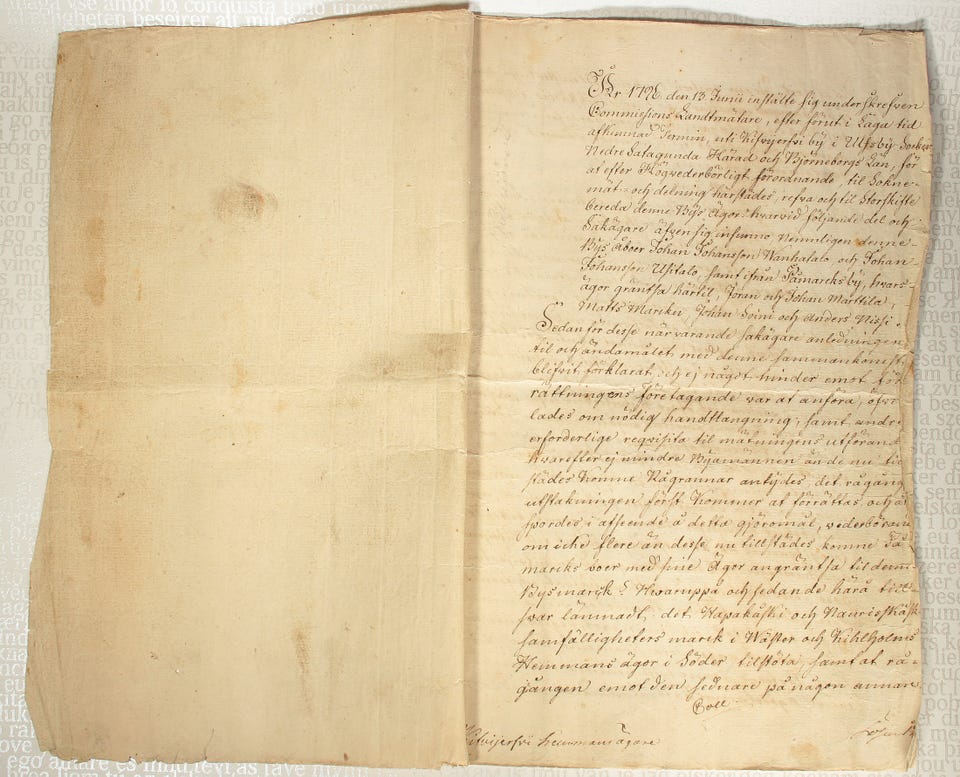 År 1796 den 13 Junii instälte sig underskrefven
Commissions Landtmätare, efter förut i Laga tid
afkunnad Termin, uti Kisvijerfvi by i Ulfsby Sockn
Nedre Satagunda Härad och Björneborgs Län, för
at efter Högvederbörligt förordnande, til Sokne-
mät- och delning härstädes, refva och til Storskifte
bereda denne Bys Ägor: hvarvid följande del och
Sakägare äfven sig infunno, Nemnligen denne
Bys Åboer Johan Johansson Wanhatalo, och Johan
Johansson Usitalo, samt ifrån Påmarcks by, hvars
ägor gräntsa härtil, Jöran och Johan Marttila,
Matts Marcku, Johan Soini och Anders Nissi.
Sedan för desse närvarande sakägare anledningen
til och ändamålet med denne sammankomst
blifvit förklarat och ej något hinder emot för
rättningens företagande var at anföra, öfver
lades om nödig handtlangning, samt andre
erforderlige reqvisita til mätningens utförand
hvarefter ej mindre Byamännen än de nu til
städes komne Rågrannar antyddes, det rågång
utstakningen först kommer at förrättas och åt
spordes i afseende å detta gjöromål, vederböran
om icke flere än desse nu tillstädes komne På
marcks boer med sine Ägor angräntsa til denne
Bysmarck? Hvaruppå och sedan de härå till
svar lämnadt, det Wapakåski och Naurisskåski
samfälligheters marck i Wäster och Kihlholms
Hemmans ägor i Söder tilstöta, samt at rå-
gången emot den sednare på någon annan
Boll
Kisvijerfvi hemmans ägare